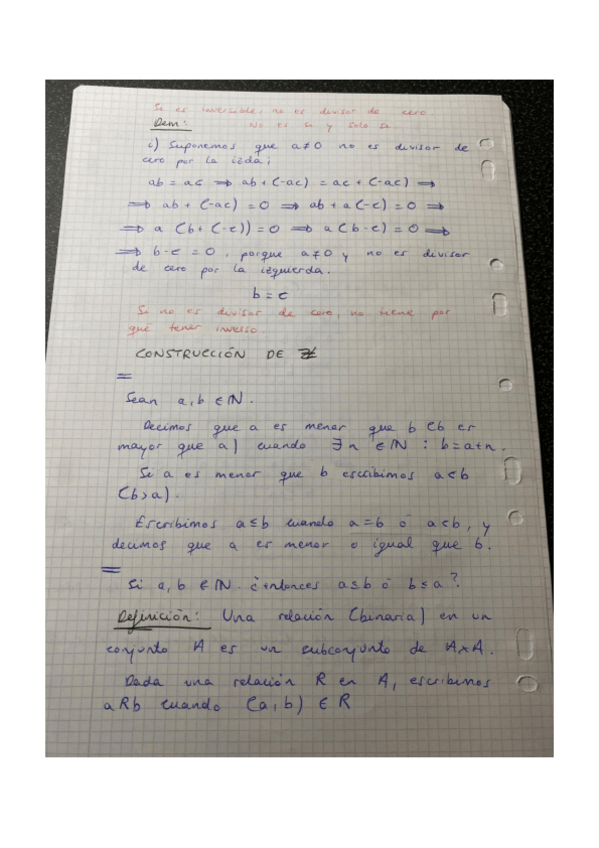 Si es inversible, no es divisor de cero
Dem: No es si y solo si
i) Suponemos que a≠0 no es divisor de
cero por la izda;
ab = ac ⟹ ab + (-ac) = ac + (-ac) ⟹
⟹ ab + (-ac) = 0 ⟹ ab + a(-c) = 0 ⟹
⟹ a (b + (-c)) = 0 ⟹ a(b-c) = 0 ⟹
⟹ b-c = 0, porque a≠0 y no es divisor
de cero por la izquierda.
b = c
Si no es divisor de cero, no tiene por
qué tener inverso.
CONSTRUCCIÓN DE ℤ
=
Sean a, b ∈ ℕ.
Decimos que a es menor que b (b es
mayor que a) cuando ∃ n ∈ ℕ : b = a+n.
Si a es menor que b escribimos a<b
(b>a).
Escribimos a≤b cuando a=b ó a<b, y
decimos que a es menor o igual que b.
=
Si a, b ∈ ℕ. ¿Entonces a≤b ó b≤a?
Definición: Una relación (binaria) en un
conjunto A es un subconjunto de A×A.
Dada una relación R en A, escribimos
aRb cuando (a,b) ∈ R